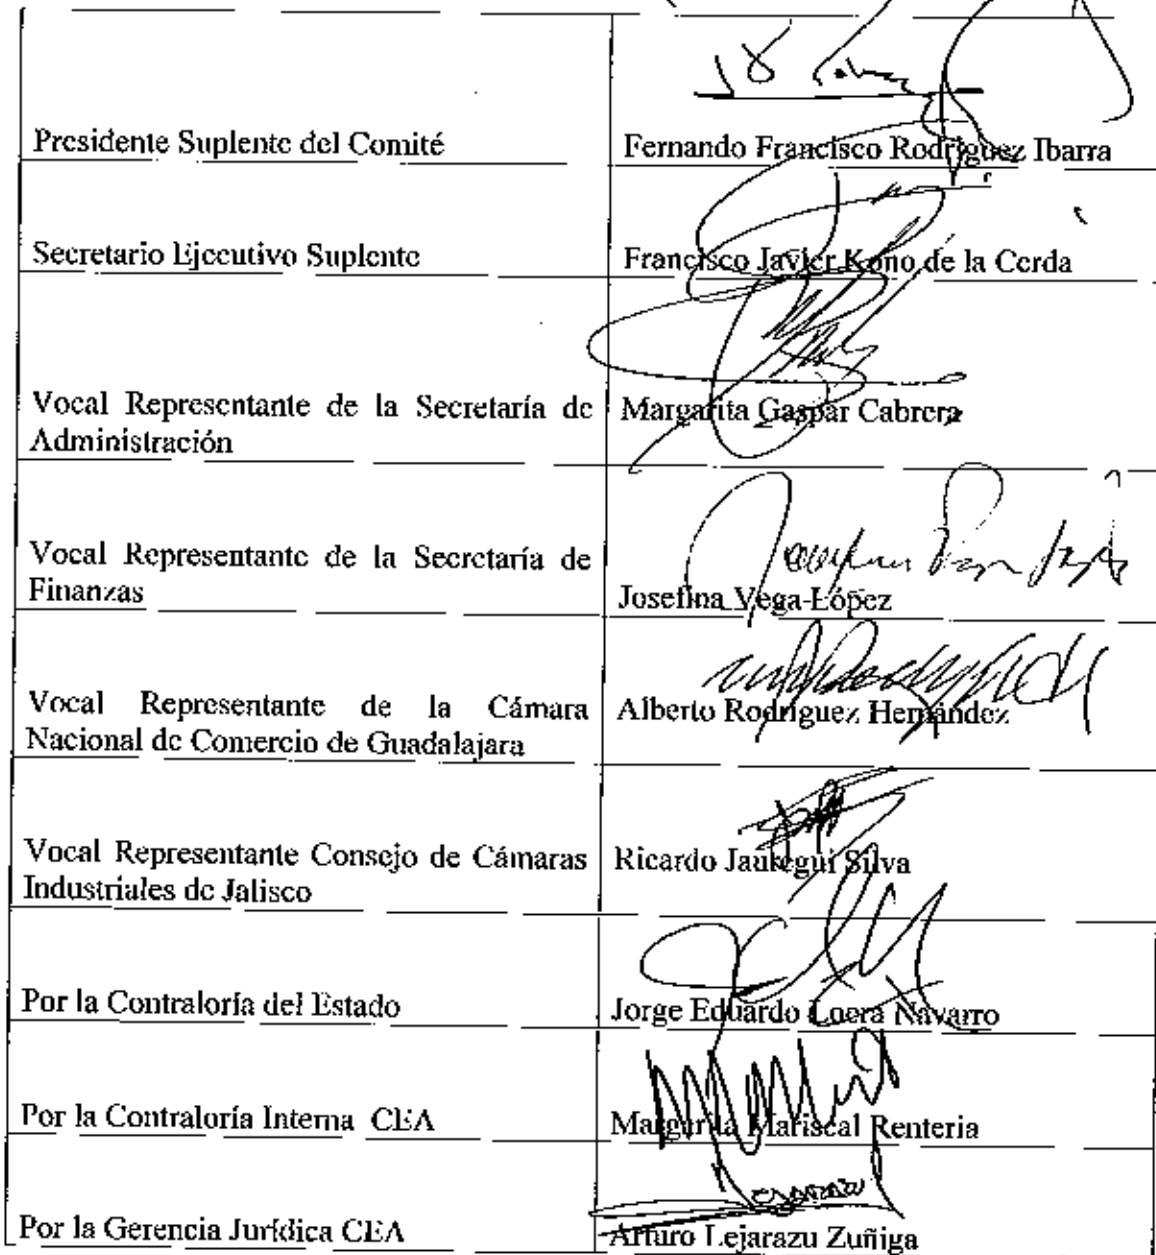 Presidente Suplente del Comité
Fernando Francisco Rodríguez Ibarra
Secretario Ejecutivo Suplente
Francisco Javier Kono de la Cerda
Vocal Representante de la Secretaría de
Administración
Margarita Gaspar Cabrera
Vocal Representante de la Secretaría de
Finanzas
Josefina Vega López
Vocal Representante de la Cámara
Nacional de Comercio de Guadalajara
Alberto Rodríguez Hernández
Vocal Representante Consejo de Cámaras
Industriales de Jalisco
Ricardo Jauregui Silva
Por la Contraloría del Estado
Jorge Eduardo Loera Navarro
Por la Contraloría Interna CEA
Margarita Mariscal Renteria
Por la Gerencia Jurídica CEA
Arturo Lejarazu Zuñiga